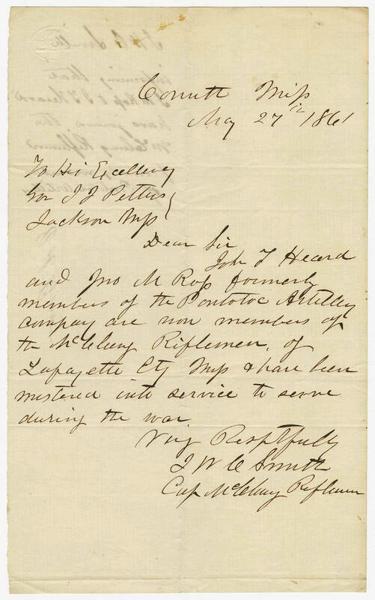 Corinth Miss
May 27th 1861
To His Excellency
Gov J J Pettus
Jackson Miss
Dear Sir
Job T Heard
and Jno M Ross formerly
members of the Pontotoc Artillery
company are now members of
the McClung Riflemen, of
Lafayette Cty Miss & have been
mustered into service to serve
during the war
Very Respectfully
J W C Smith
Cap McClung Riflemen